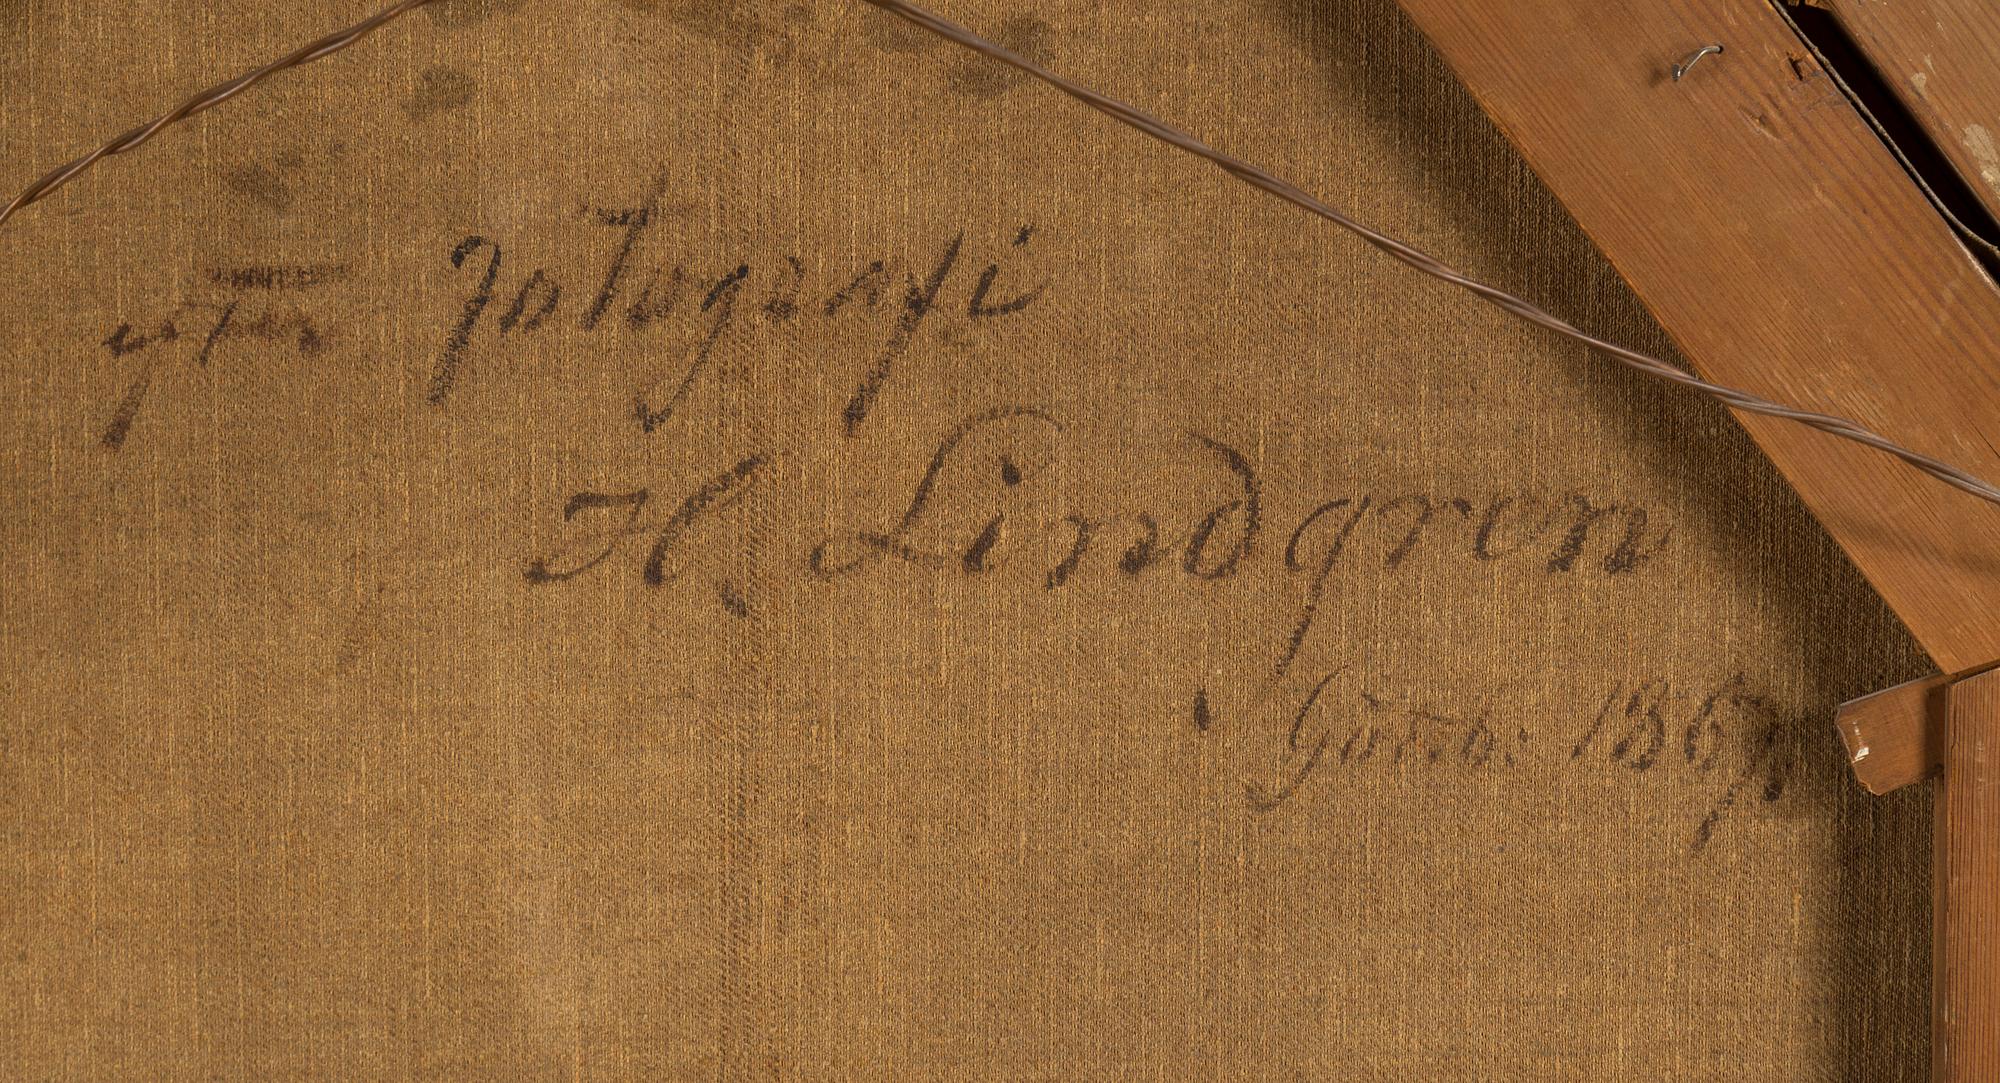 efter fotografi
H. Lindgren
Götheb: 1867.